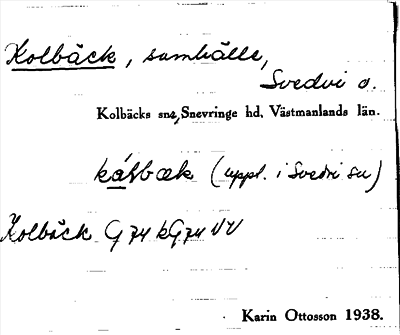 Kolbäck, samhälle,
Svedvi o.
Kolbäcks sns, Snevringe hd, Västmanlands län.
(uppl. i Svedvi sn)
Kolbäck G74 kG74 VV
Karin Ottosson 1938.